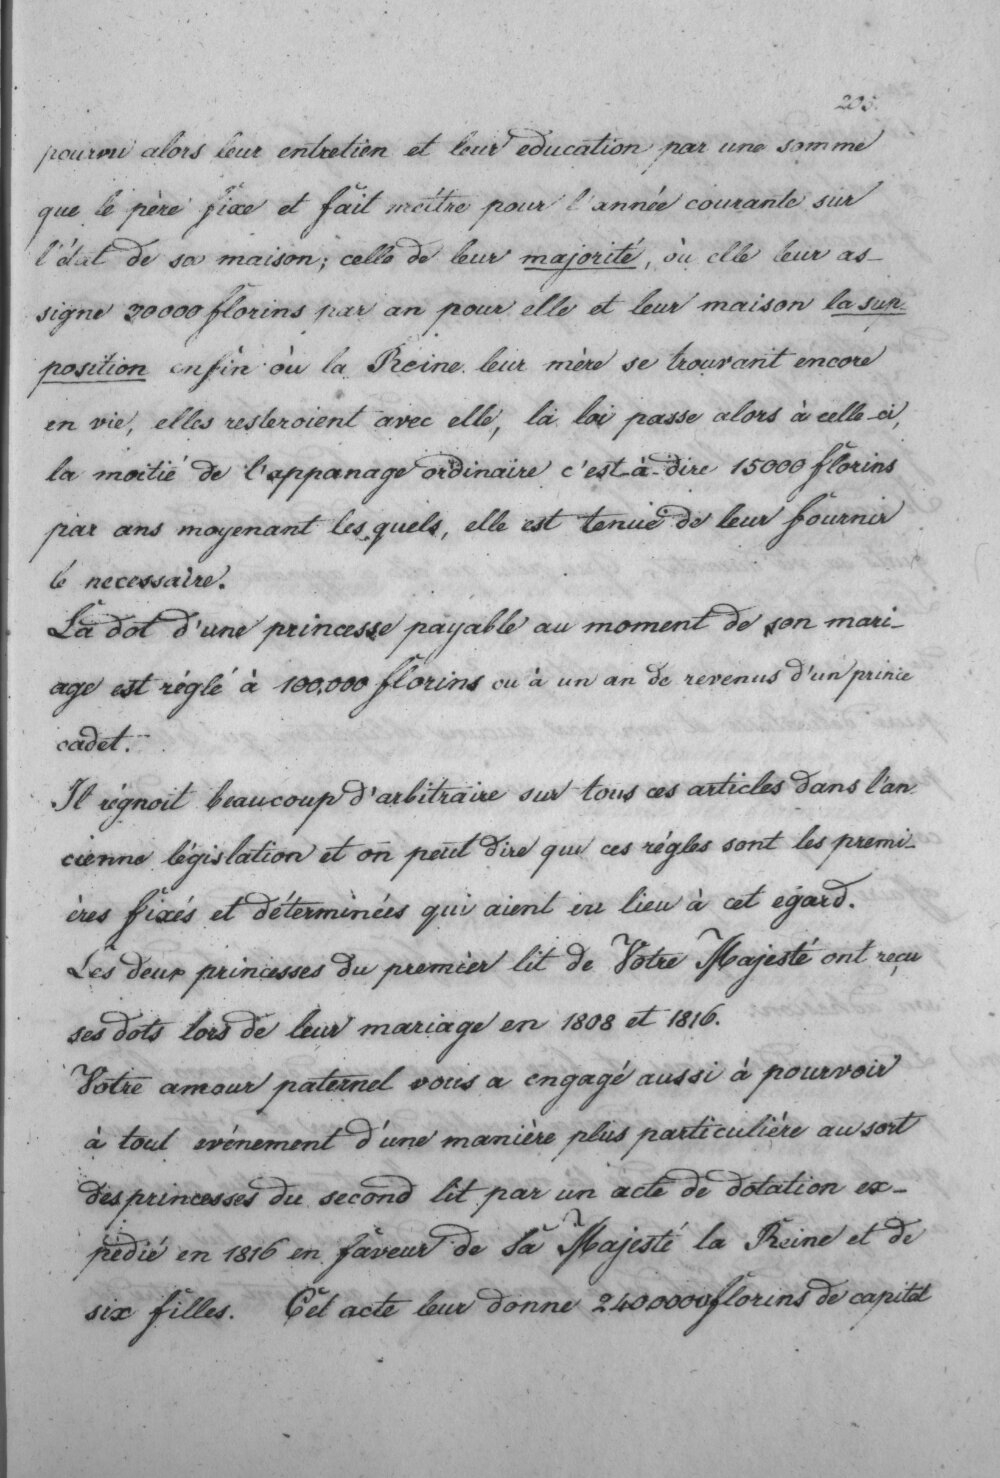 205.
pourvu alors leur entretien et leur education par une somme
que le père fixe et fait mettre pour l'année courante sur
l'état de sa maison; celle de leur majorité, où elle leur as-
signe 30000 florins par an pour elle et leur maison la sup-
position enfin où la Reine leur mère se trouvant encore
en vie, elles resteroient avec elle, la loi passe alors à celle-ci,
la moitié de l'appanage ordinaire c'est-à-dire 15000 florins
par ans moyenant les quels, elle est tenue de leur fournir
le necessaire.
La dot d'une princesse payable au moment de son mari-
age est réglé à 100,000 florins ou à un an de revenus d'un prince
cadet.
Il régnoit beaucoup d'arbitraire sur tous ces articles dans l'an
cienne législation et on peut dire que ces régles sont les premi-
ères fixés et déterminées qui aient eu lieu à cet egard.
Les deux princesses du premier lit de Votre Majesté ont reçu
ses dots lors de leur mariage en 1808 et 1816.
Votre amour paternel vous a engagé aussi à pourvoir
à tout evénement d'une manière plus particuliére au sort
des princesses du second lit par un acte de dotation ex-
pédié en 1816 en faveur de Sa Majesté la Reine et de
six filles. Cet acte leur donne 2400000 florins de capital